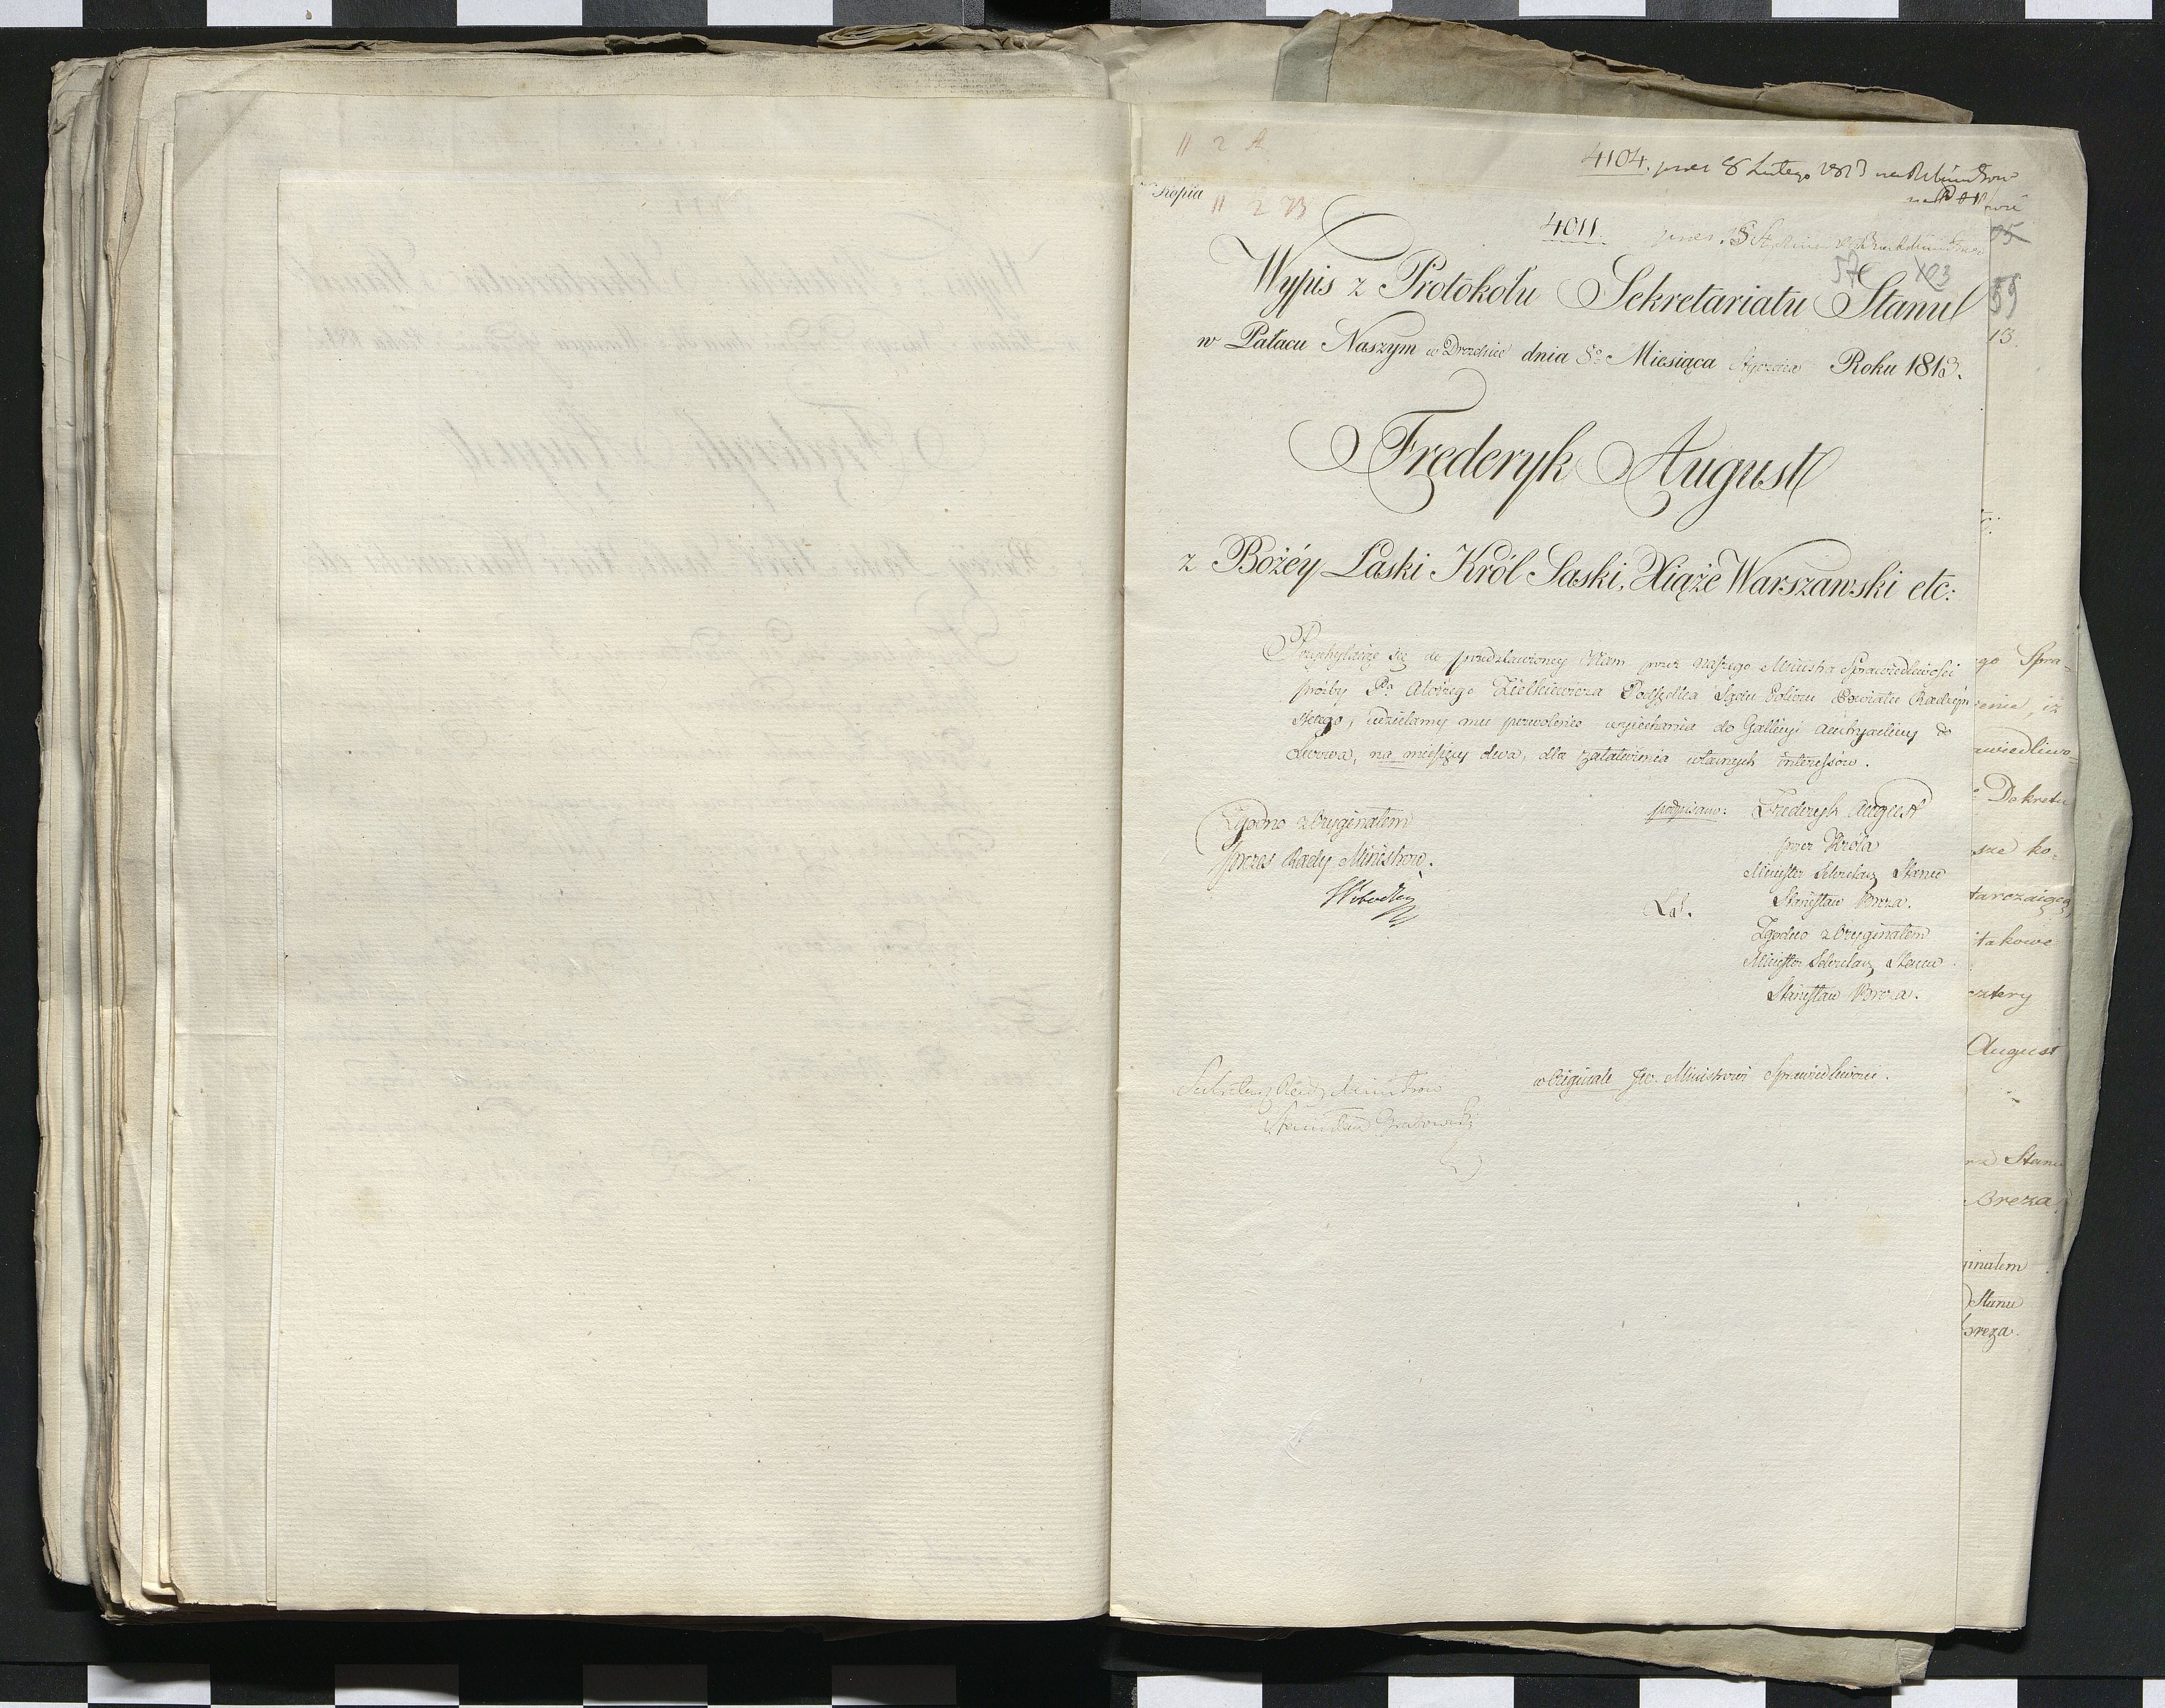 11 2 A
4104. prod 8 Lutego 1813
Kopia
11 2 B
4011.
95
57 103
59
Wypis z Protokołu Sekretariatu Stanu
w Pałacu Naszym w Dreznie dnia 8º Miesiąca Stycznia Roku 1813.
13.
Frederyk August
z Bożéy Łaski Król Saski, Xiąże Warszawski etc:
Przychylaiąc się do przedstawioney Nam przez naszego Ministra Sprawiedliwości
prośby Pa Aloizego Zielkiewicza Podsędka Sądu Policyi Powiatu Radzyń
skiego, udzielamy mu pozwolenie wyiechania do Gallicyi Austryackiey do
Lwowa, na miesięcy dwa, dla załatwienia własnych interessów.
Zgodno z Oryginałem
Prezes Rady Ministrów.
podpisano: Frederyk August
przez Króla
Minister Sekretarz Stanu
Stanisław Breza.
Zgodno z Oryginałem
Minister Sekretarz Stanu
Stanisław Breza.
Sekretarz Rady Ministrów
Stanisław Grabowski
w Originale JW. Ministrowi Sprawiedliwości.
go Spra-
enie, iż
awiedliwo-
Dekretu
sze ko-
tarczaiącą
takowe
cztery
August
Stanu
Breza
ginałem
Stanu
Breza.